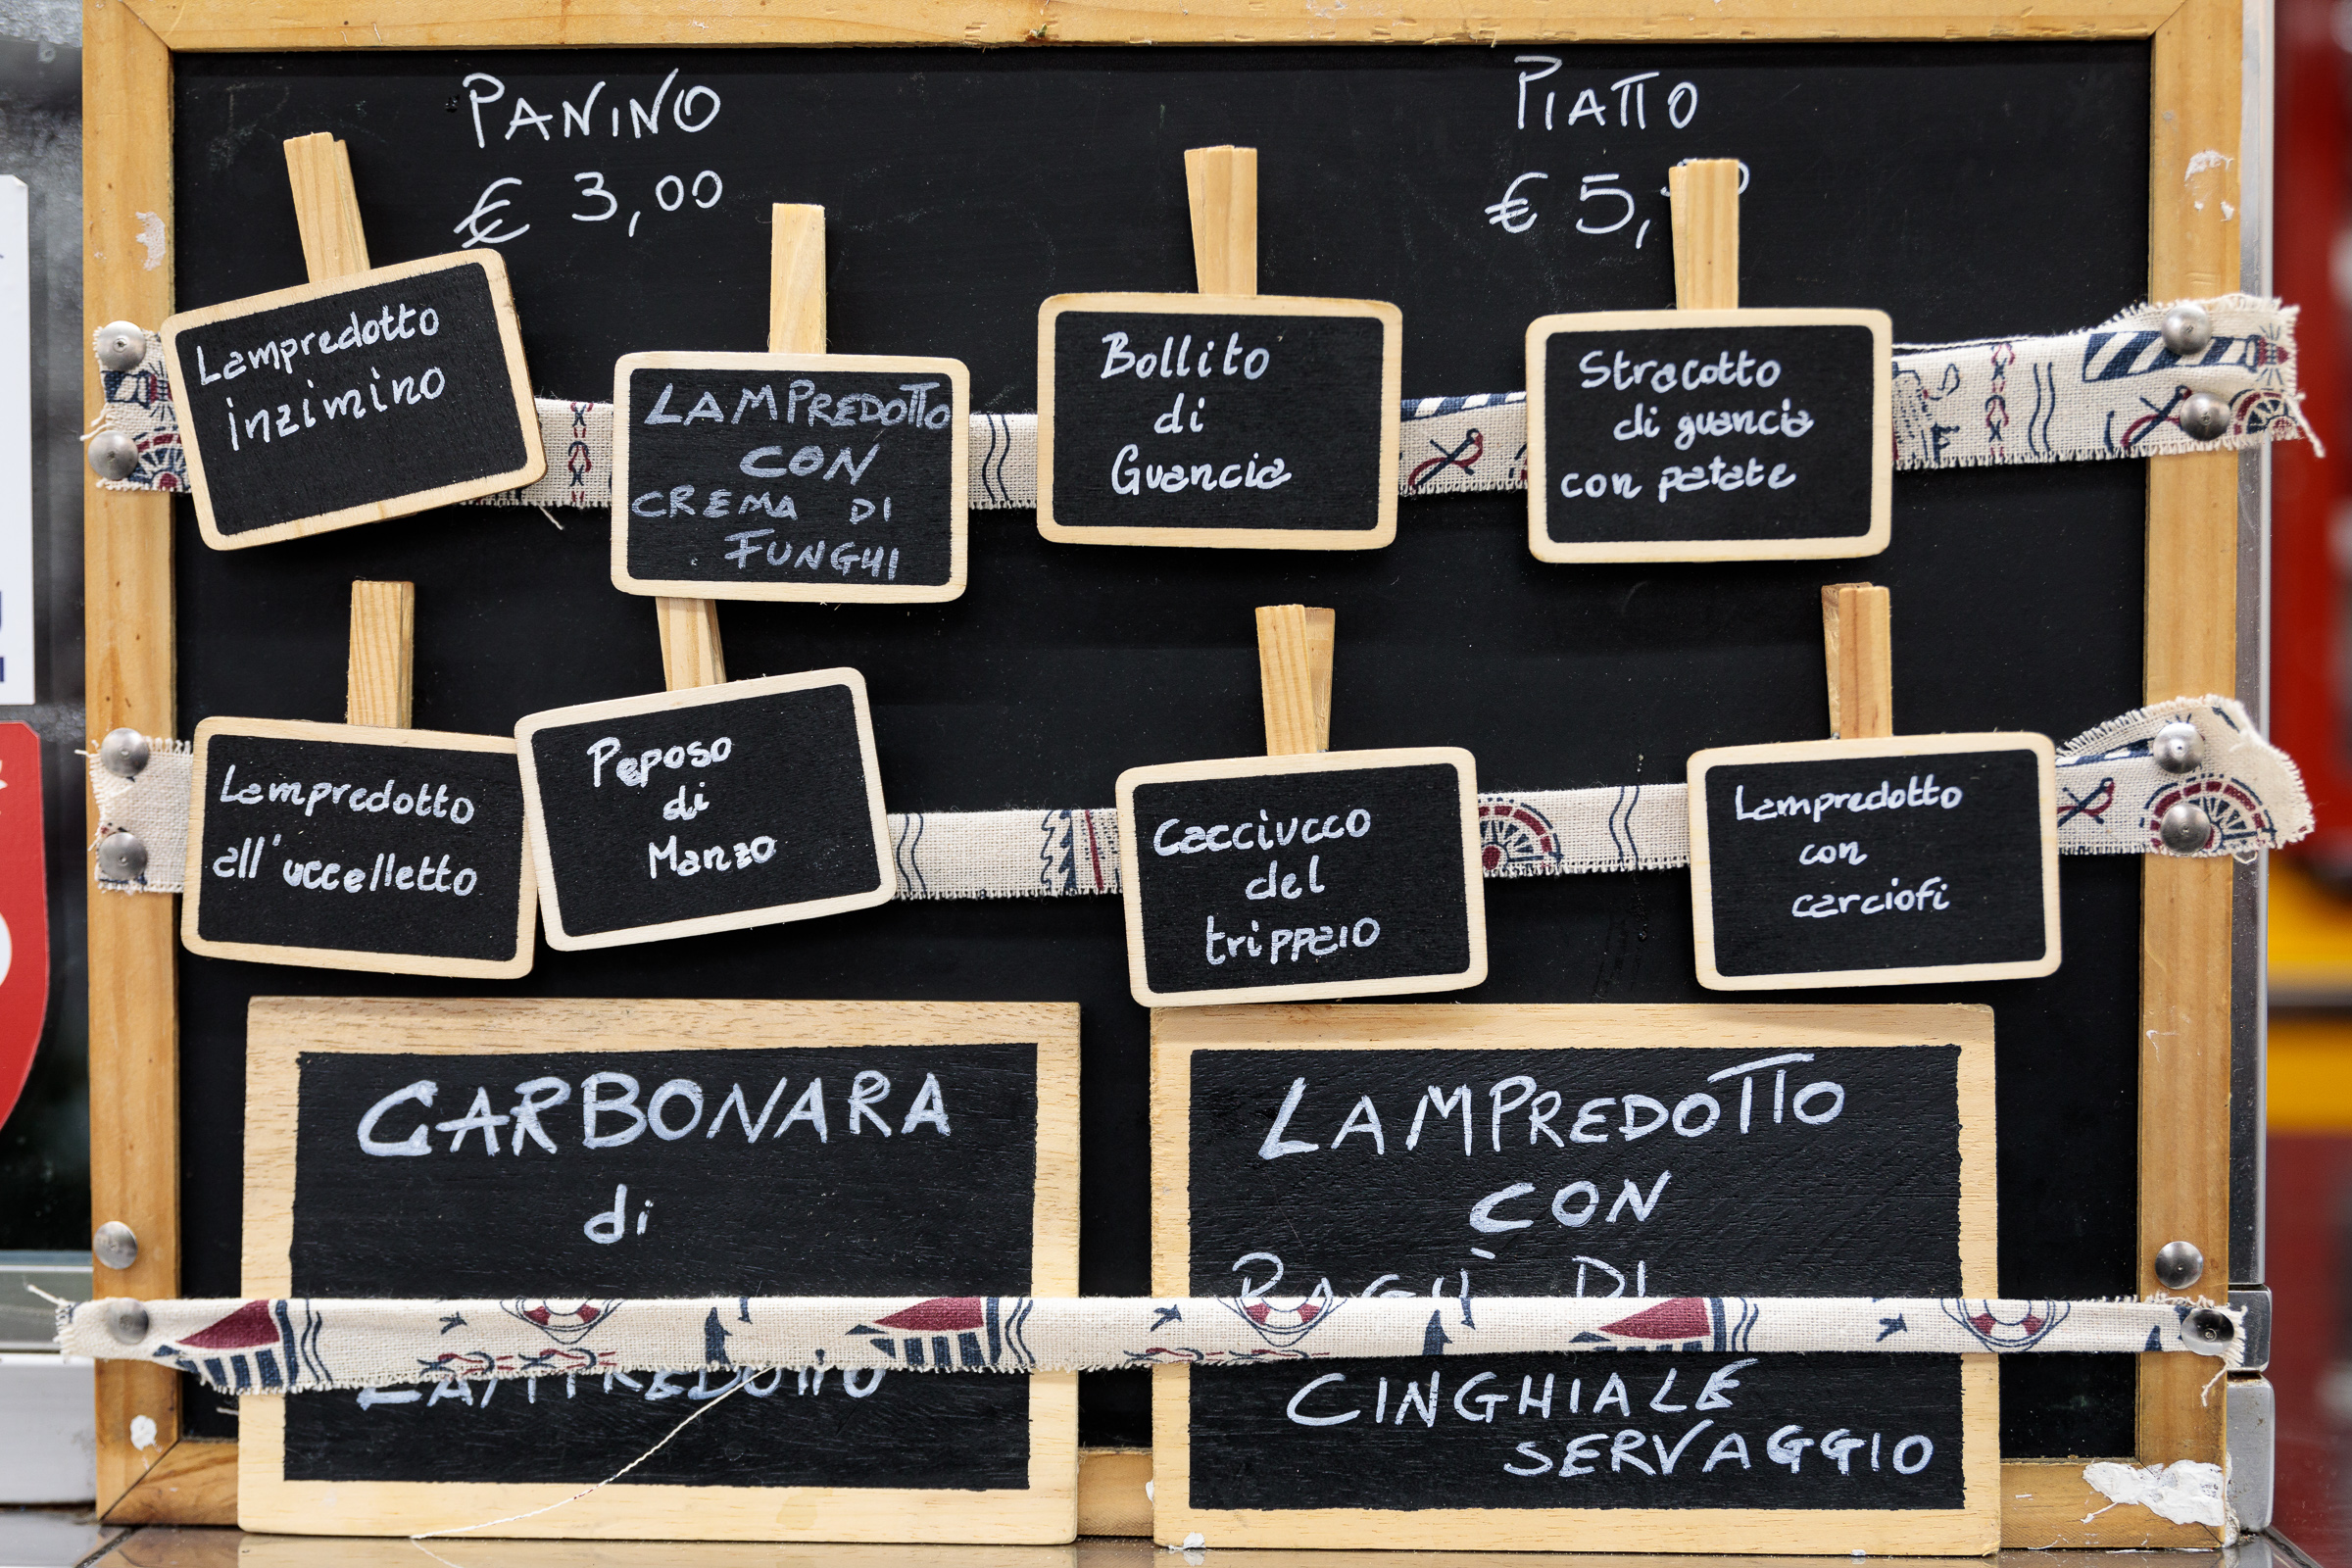 PANINO
€ 3,00
PIATTO
€ 5,
Lampredotto
inzimino
LAMPREDOTTO
CON
CREMA DI
FUNGHI
Bollito
di
Guancia
Stracotto
di guancia
con patate
Lampredotto
all'uccelletto
Peposo
di
Manzo
Cacciucco
del
trippaio
Lampredotto
con
carciofi
CARBONARA
di
LAMPREDOTTO
LAMPREDOTTO
CON
RAGÙ DI
CINGHIALE
SERVAGGIO